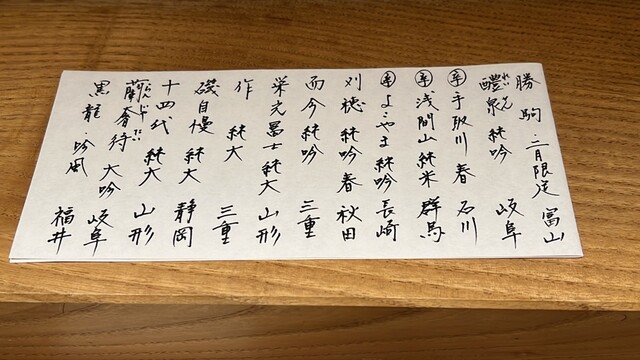 勝駒・二月限定 富山
醴泉 純吟 岐阜
㊛手取川 春 石川
浅間山 純米 群馬
よこやま 純吟 長崎
刈穂 純吟 春 秋田
而今 純吟 三重
栄光冨士 純大 山形
作 純大 三重
磯自慢 純大 静岡
十四代 純大 山形
蘭奢待 大吟 岐阜
黒龍・吟風 福井